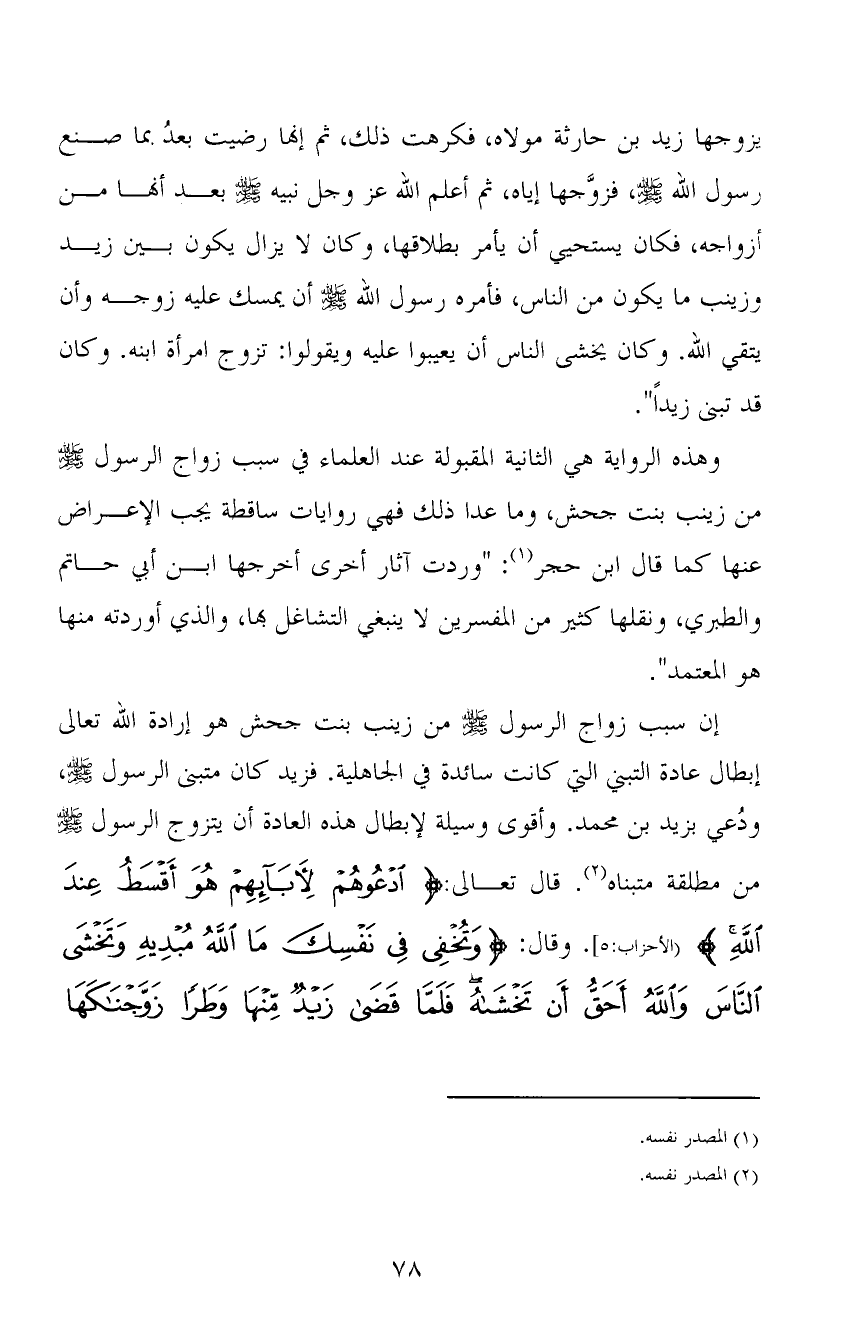 يزوجها زيد بن حارثة مولاه، فكرهت ذلك، ثم إنها رضيت بعدُ بما صنع
رسول الله ﷺ، فزوَّجها إياه، ثم أعلم الله عز وجل نبيه ﷺ بعد أنها من
أزواجه، فكان يستحيي أن يأمر بطلاقها، وكان لا يزال يكون بين زيد
وزينب ما يكون من الناس، فأمره رسول الله ﷺ أن يمسك عليه زوجه وأن
يتقي الله. وكان يخشى الناس أن يعيبوا عليه ويقولوا: تزوج امرأة ابنه. وكان
قد تبنى زيداً".
وهذه الرواية هي الثانية المقبولة عند العلماء في سبب زواج الرسول ﷺ
من زينب بنت جحش، وما عدا ذلك فهي روايات ساقطة يجب الإعراض
عنها كما قال ابن حجر(١): "وردت آثار أخرى أخرجها ابن أبي حاتم
والطبري، ونقلها كثير من المفسرين لا ينبغي التشاغل بها، والذي أوردته منها
هو المعتمد".
إن سبب زواج الرسول ﷺ من زينب بنت جحش هو إرادة الله تعالى
إبطال عادة التبني التي كانت سائدة في الجاهلية. فزيد كان متبنى الرسول ﷺ،
ودُعي بزيد بن محمد. وأقوى وسيلة لإبطال هذه العادة أن يتزوج الرسول ﷺ
من مطلقة متبناه(٢). قال تعالى: ﴿ ٱدۡعُوهُمۡ لِأَبَآئِهِمۡ هُوَ أَقۡسَطُ عِندَ
ٱللَّهِۚ ﴾ (الأحزاب:٥]. وقال: ﴿ وَتُخۡفِي فِي نَفۡسِكَ مَا ٱللَّهُ مُبۡدِيهِ وَتَخۡشَى
ٱلنَّاسَ وَٱللَّهُ أَحَقُّ أَن تَخۡشَىٰهُۖ فَلَمَّا قَضَىٰ زَيۡدٞ مِّنۡهَا وَطَرٗا زَوَّجۡنَٰكَهَا
(١) المصدر نفسه.
(٢) المصدر نفسه.
٧٨